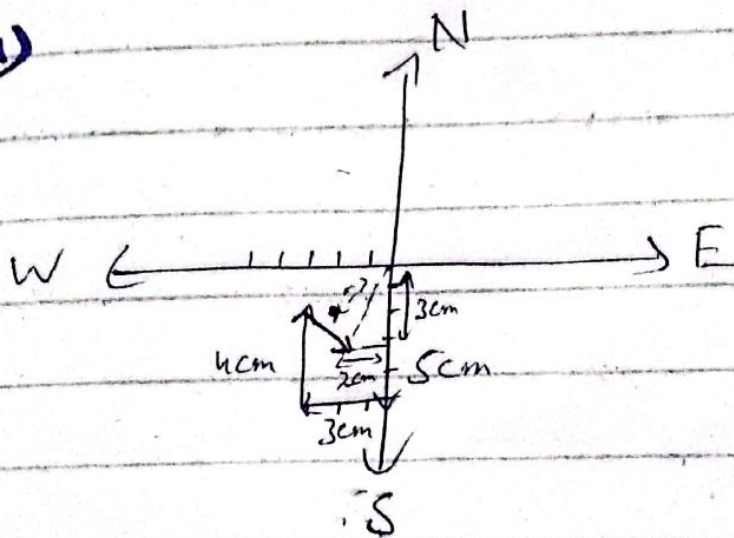 1)
N
W E
3cm
4cm 2cm 5cm
3cm
S